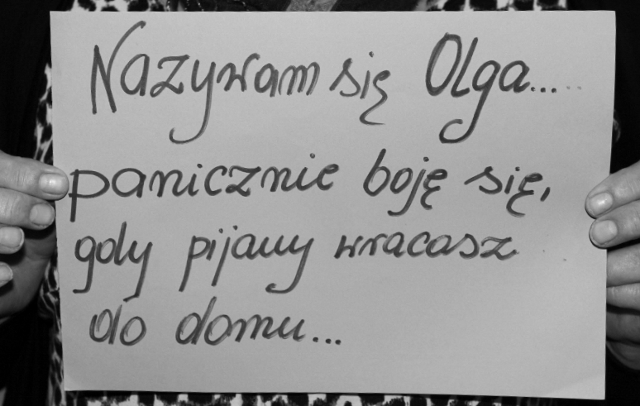 Nazywam się Olga.....
panicznie boję się,
gdy pijany wracasz
do domu...